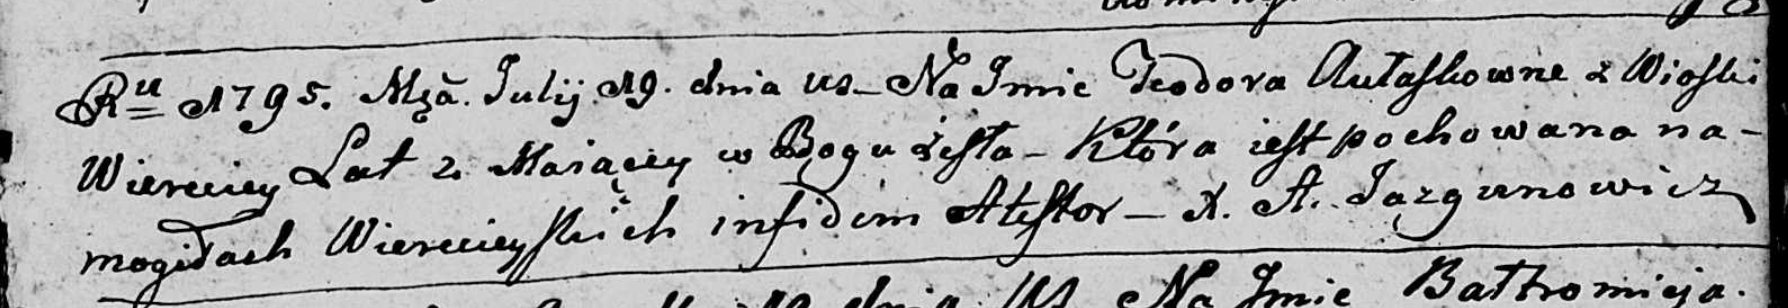 Ru 1795. Mcą. Julij. 19. dnia us_ Na Jmie Teodora Aułaskowne z Wioski
Wiereciey Lat 2. Maiącey w Bogu zesła - Która iest pochowana na -
mogiłach Wiereciey skich infidem Atestor - X. A. Jazgunowicz
dnia Us Na Jmie Bałtromieja.